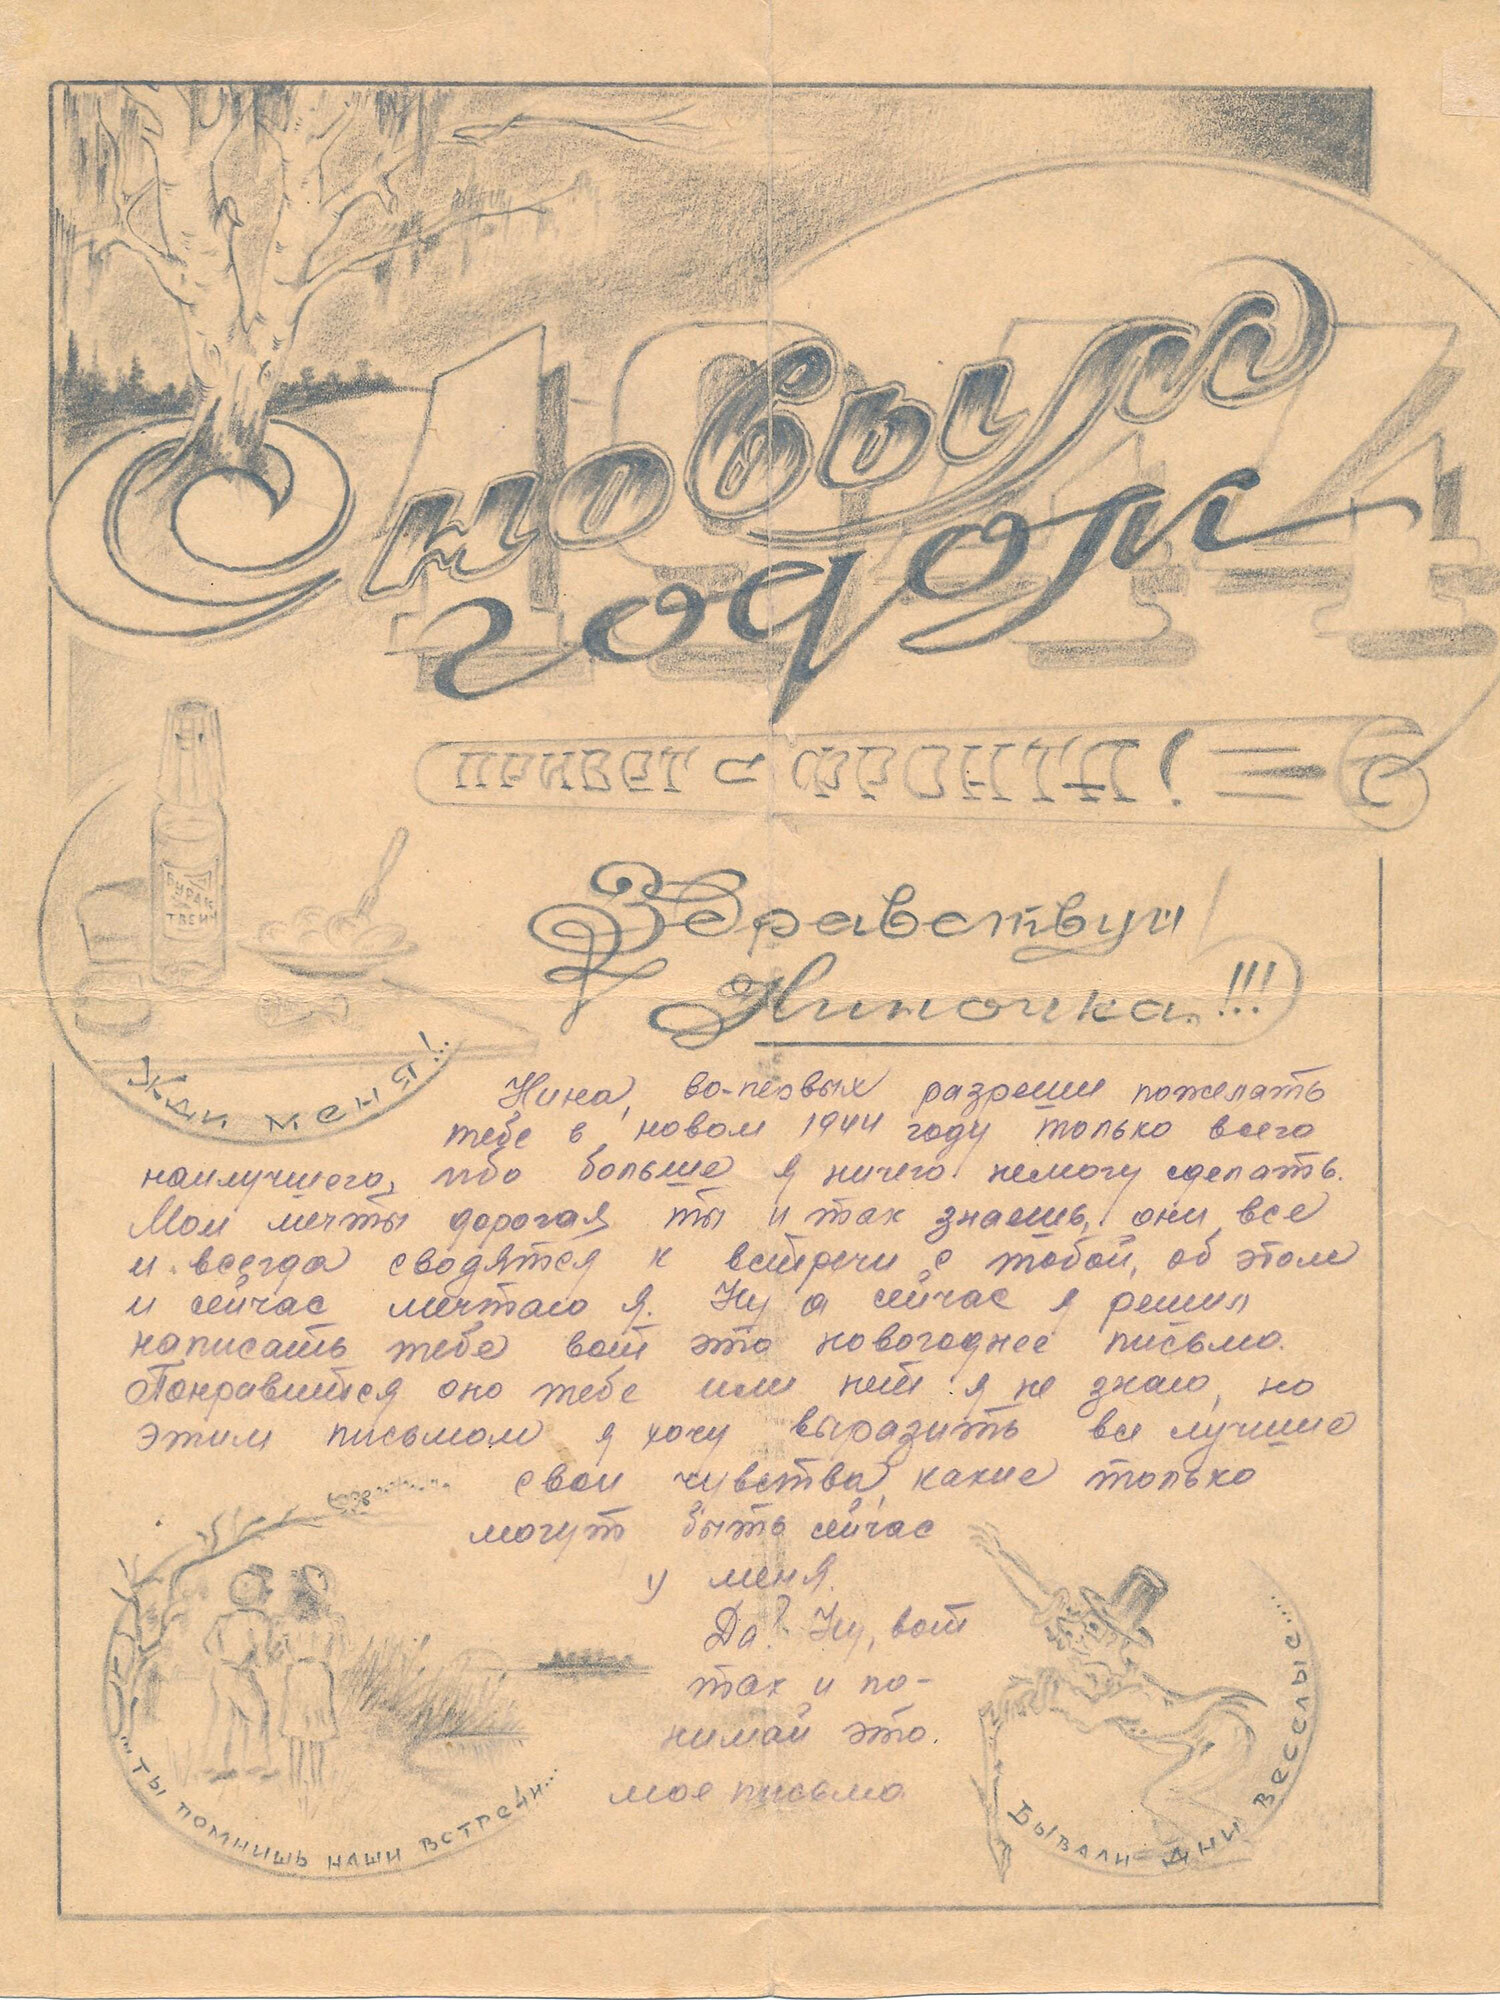 С новым
годом
1944
Привет с фронта!
БУРАК
ТВЕЙН
Жди меня!..
Здравствуй
Ниночка!!!
Нина, во-первых разреши пожелать
тебе в новом 1944 году только всего
наилучшего, ибо больше я ничего немогу сделать.
Мои мечты дорогая ты и так знаешь, они все
и всегда сводятся к встречи с тобой, об этом
и сейчас мечтаю я. Ну а сейчас я решил
написать тебе вот это новогоднее письмо.
Понравится оно тебе или нет я не знаю, но
этим письмом я хочу выразить все лучшие
свои чувства, какие только
могут быть сейчас
у меня.
Да? Ну, вот
так и по-
нимай это.
мое письмо
...Ты помнишь наши встречи...
Бывали дни веселые.....